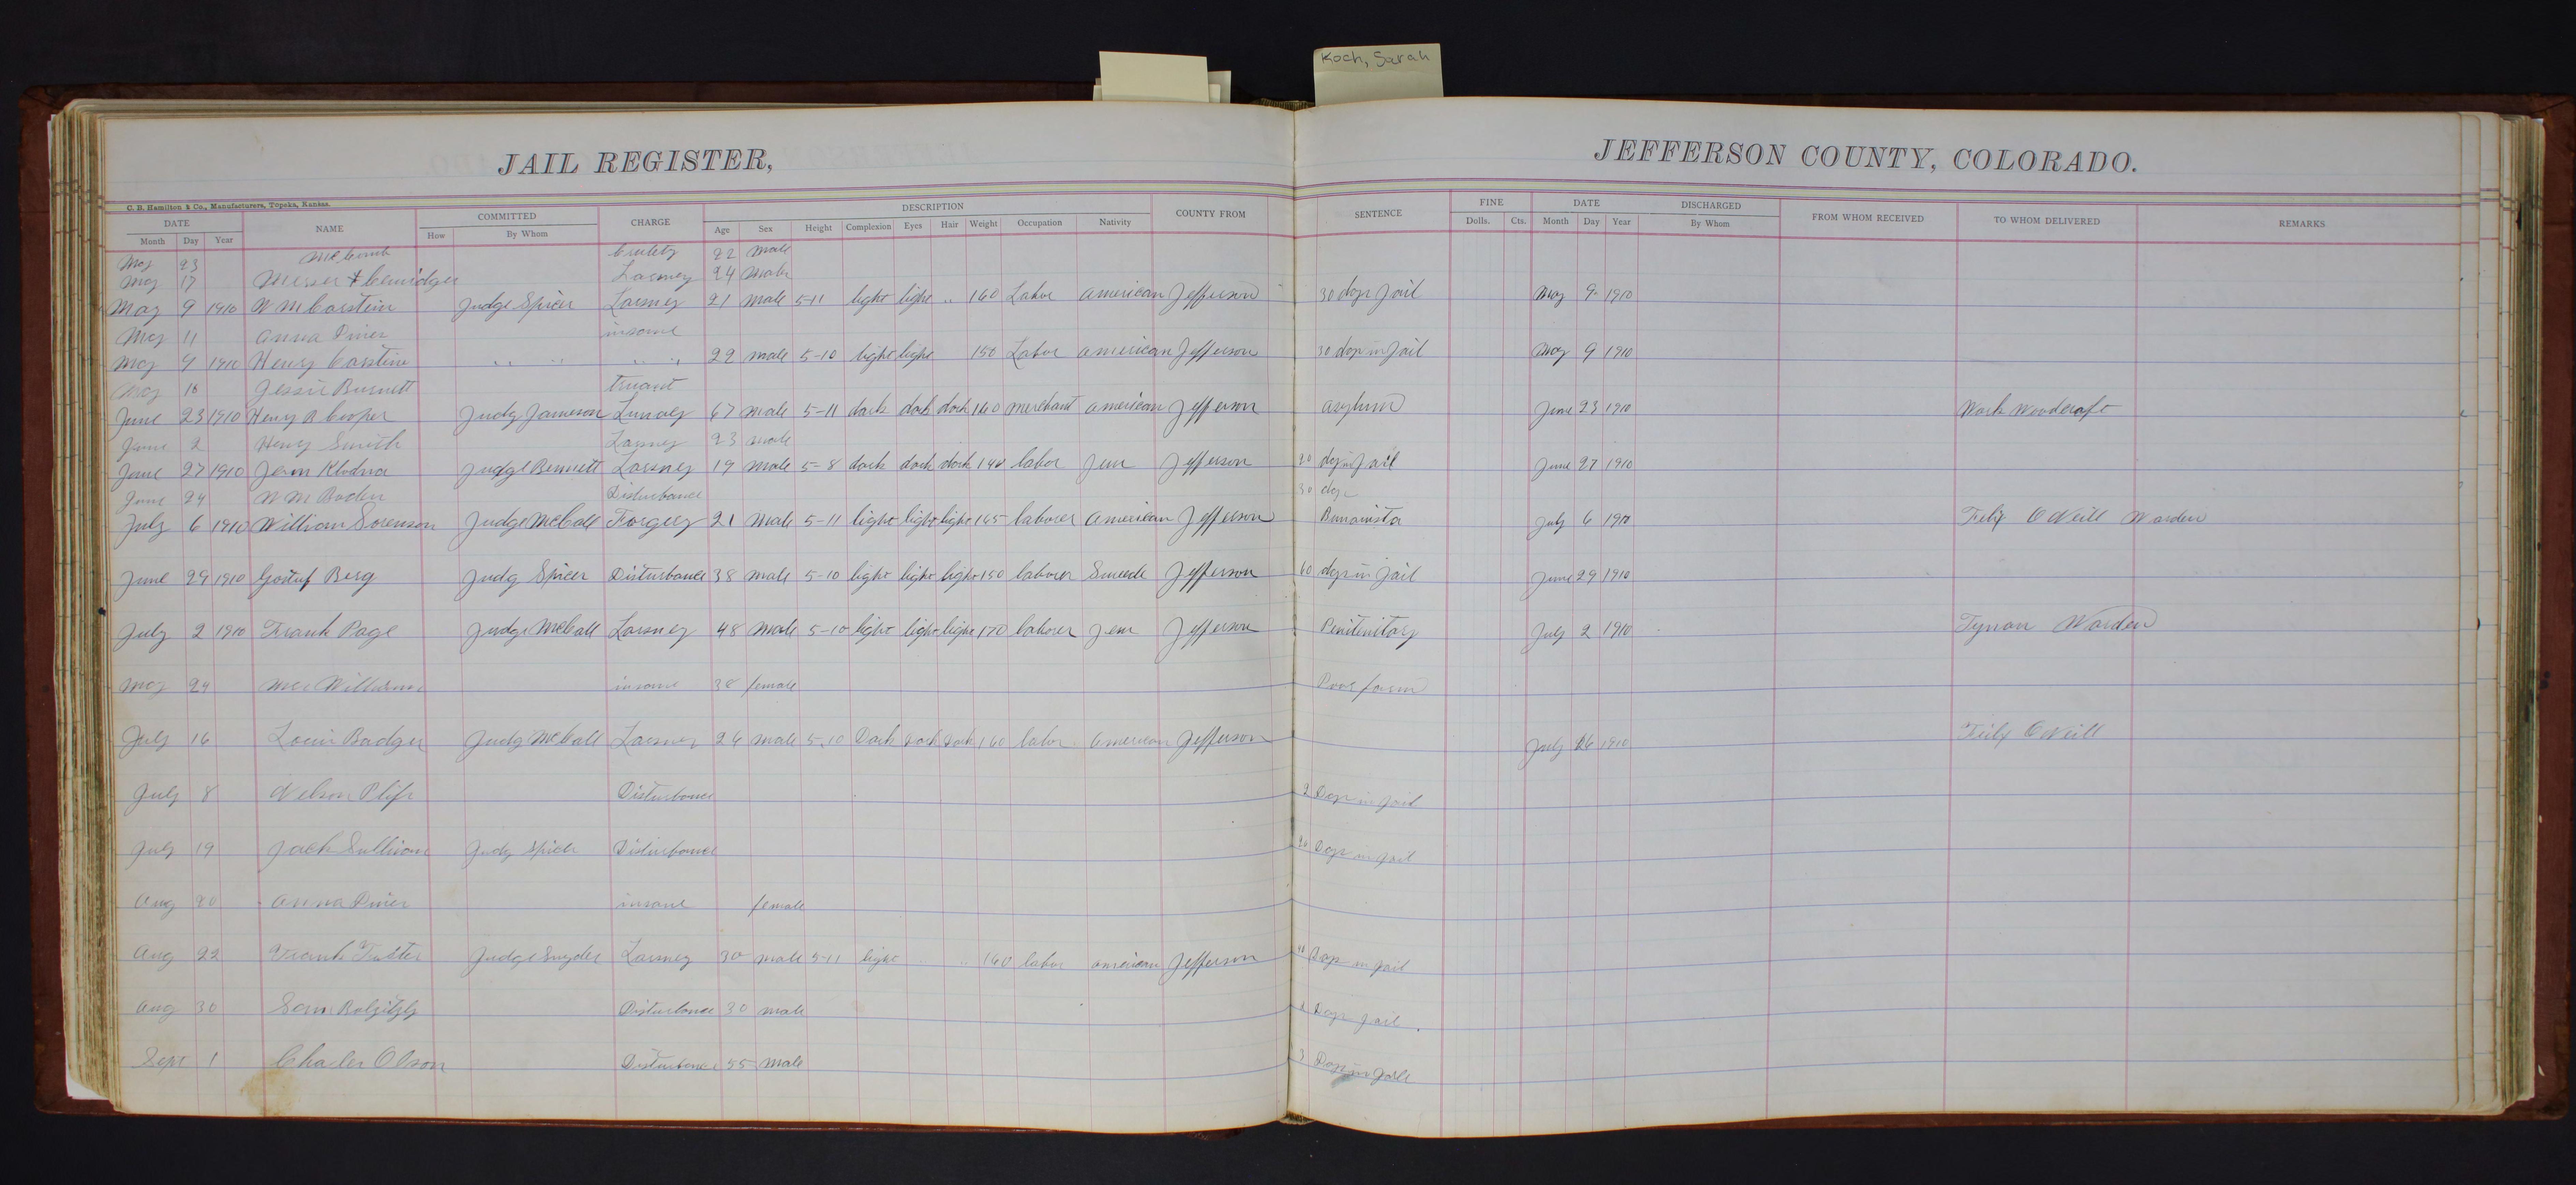 Koch, Sarah
JAIL REGISTER, JEFFERSON COUNTY, COLORADO.
C. B. Hamilton & Co., Manufacturers, Topeka, Kansas.
DATE NAME COMMITTED CHARGE DESCRIPTION COUNTY FROM SENTENCE FINE DATE DISCHARGED FROM WHOM RECEIVED TO WHOM DELIVERED REMARKS
Month Day Year How By Whom Age Sex Height Complexion Eyes Hair Weight Occupation Nativity Dolls. Cts. Month Day Year By Whom
May 23 McComb 22 male
May 17 Larsney 24 male
May 9 1910 Wm Carstein Judge Spicer Larsney 21 male 5-11 light light " 160 Labor American Jefferson 30 days Jail May 9 1910
May 11 Anna Piner insane
May 9 1910 Henry Carstine " " " " 22 male 5-10 light light 150 Labor American Jefferson 30 days in Jail May 9 1910
May 18 Jessie Burnett truant
June 23 1910 Henry R Cooper Judg Jameson Lunacy 67 male 5-11 dark dark dark 160 merchant American Jefferson asylum June 23 1910 Mark Woodcraft
June 2 Henry Smith Larsney 23 male
June 27 1910 Judge Bennett Larsney 19 male 5-8 dark dark dark 140 labor Jefferson 20 days in Jail June 27 1910
June 24 Wm Boden Disturbance 30 days
July 6 1910 William Sorenson Judge McCall Forgery 21 male 5-11 light light light 165 laborer American Jefferson Bunavista July 6 1910 Felix O Neill Warden
June 29 1910 Gostuf Berg Judg Spicer Disturbance 38 male 5-10 light light light 150 laborer Sweede Jefferson 60 days in Jail June 29 1910
July 2 1910 Frank Page Judge McCall Larsney 48 male 5-10 light light light 170 laborer Jefferson Penitenitary July 2 1910 Tynan Warden
May 24 insane 38 female Poor farm
July 16 Louis Badger Judg McCall Larsney 26 male 5,10 Dark Dark Dark 160 labor American Jefferson July 26 1910 Felix O Neill
July 8 Nelson Disturbance 2 Days in Jail
July 19 Jack Sullivan Judg Spicer Disturbance Days in Jail
Aug 20 Anna Piner insane female
Aug 22 Frank Foster Judge Snyder Larsney 30 male 5-11 light " " 160 labor American Jefferson Days in Jail
Aug 30 Sam Disturbance 30 male Days Jail
Sept 1 Charles Olson Disturbance 55 male 3 Days in Jail